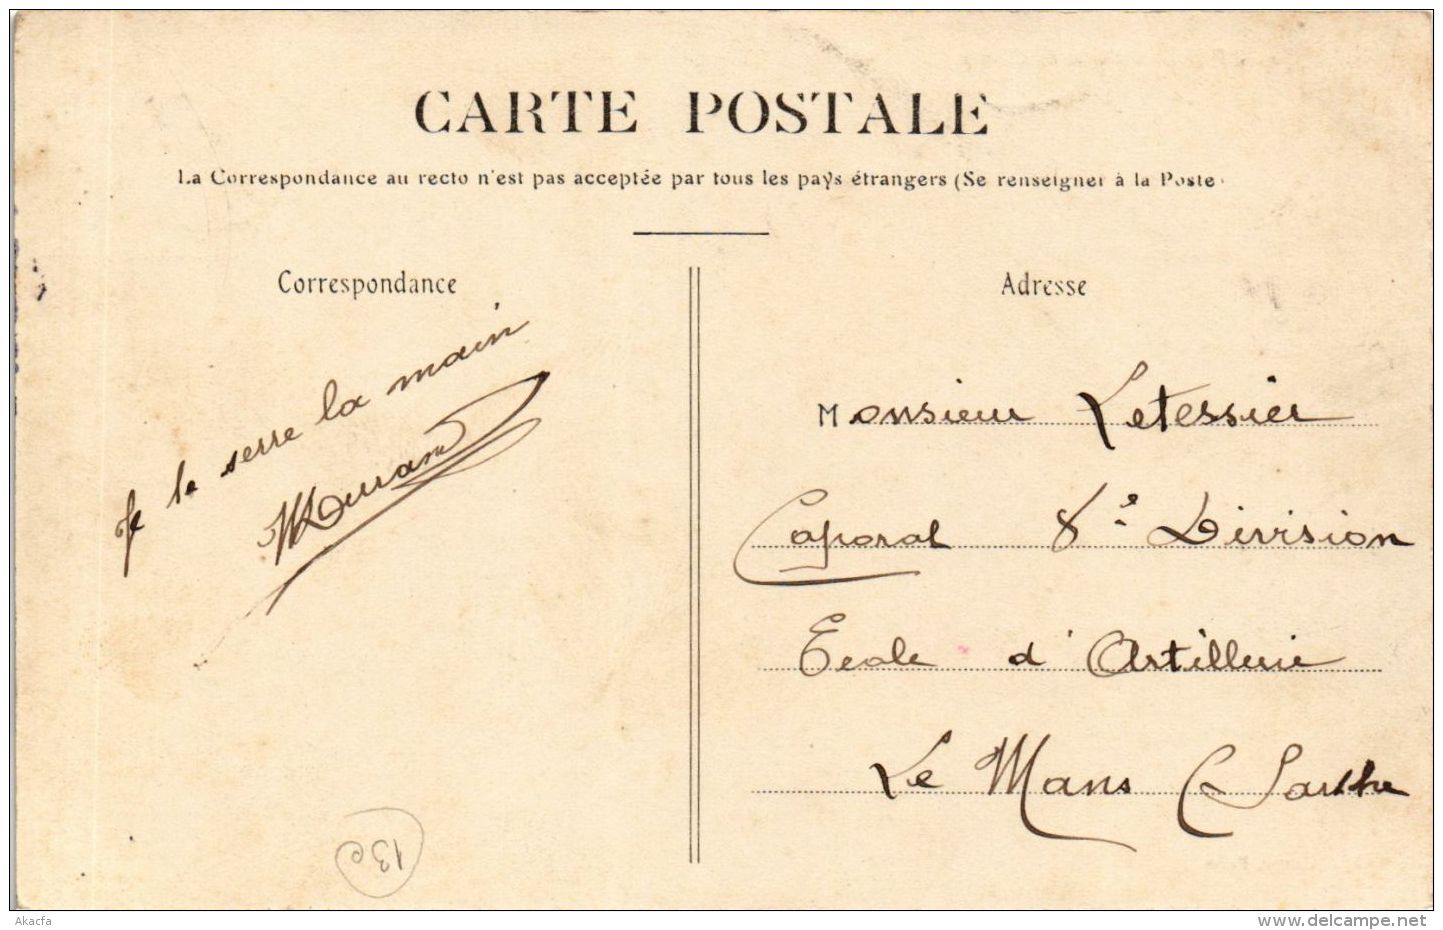 CARTE POSTALE
La Correspondance au recto n'est pas acceptée par tous les pays étrangers (Se renseigner à la Poste
Correspondance
Je te serre la main
Adresse
Monsieur Letessier
Caporal 8e Division
Ecole d'Artillerie
Le Mans (Sarthe
13e
Akacfa
https://www.delcampe.net